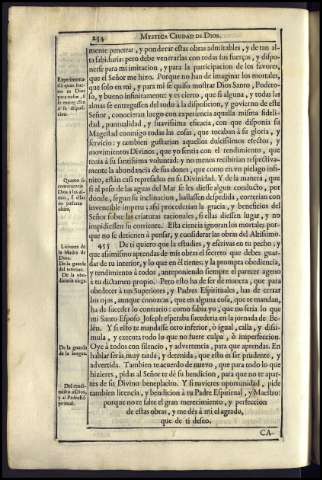 254 MYSTICA CIUDAD DE DIOS.
mente penetrar, y ponderar estas obras admirables, y de tan al-
ta sabiduria; pero debe venerarlas con todas sus fuerças, y dispo-
nerse para mi imitacion, y para la participacion de los favores,
que el Señor me hizo. Porque no han de imaginar los mortales,
que solo en mi, y para mi se quiso mostrar Dios Santo, Podero-
so, y bueno infinitamente; y es cierto, que si alguna, y todas las
almas se entregassen del todo à la disposicion, y govierno de este
Señor, conocieran luego con experiencia aquella misma fideli-
dad, puntualidad, y suavissima eficacia, con que disponia su
Magestad conmigo todas las cosas, que tocaban à su gloria, y
servicio; y tambien gustarian aquellos dulcissimos efectos, y
movimientos Divinos, que yo sentia con el rendimiento, que
tenia à su santissima voluntad; y no menos recibirian respectiva-
mente la abundancia de sus dones, que como en un pielago infi-
nito, estàn casi represados en su Divinidad. Y de la manera, que
si al peso de las aguas del Mar se les diesse algun conducto, por
donde, segun su inclinacion, hallassen despedida, correrian con
invencible impetu: assi procederian la gracia, y beneficios del
Señor sobre las criaturas racionales, si ellas diessen lugar, y no
impidiessen su corriente. Esta ciencia ignoran los mortales, por-
que no se detienen à pensar, y considerar las obras del Altissimo.
455 De ti quiero que la estudies, y escrivas en tu pecho; y
que assimismo aprendas de mis obras el secreto que debes guar-
dar de tu interior, y lo que en èl tienes; y la prompta obediencia,
y rendimiento à todos, anteponiendo siempre el parecer ageno
à tu dictamen proprio. Pero esto ha de ser de manera, que para
obedecer à tus Superiores, y Padres Espirituales, has de cerrar
los ojos, aunque conozcas, que en alguna cosa, que te mandan,
ha de suceder lo contrario: como sabia yo, que no seria lo que
mi Santo Esposo Joseph esperaba sucederia en la jornada de Be-
lèn. Y si esto te mandasse otro inferior, ò igual, calla, y disi-
mula, y executa todo lo que no fuere culpa, ò imperfeccion.
Oye à todos con silencio, y advertencia, para que aprendas. En
hablar seràs muy tarda, y detenida, que esto es ser prudente, y
advertida. Tambien te acuerdo de nuevo, que para todo lo que
hizieres, pidas al Señor te dè su bendicion, para que no te apar-
tes de su Divino beneplacito. Y si tuvieres oportunidad, pide
tambien licencia, y bendicion à tu Padre Espiritual, y Maestro:
porque no te falte el gran merecimiento, y perfeccion
de estas obras, y me dès à mi el agrado,
que de ti deseo.
CA-
De la guarda
de la lengua.